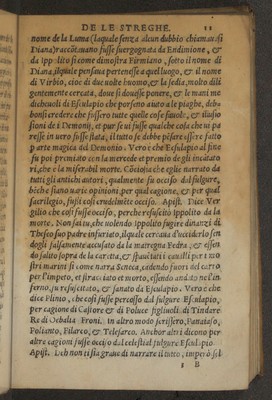 DE LE STREGHE. 11
nome de la Luna (laquale senza alcun dubbio chiamauasi
Diana) raccõtauano fusse suergognata da Endimione, &
da Ippolito si come dimostra Firmiano, sotto il nome di
Diana, ilquale pensaua pertenese a quel luogo, & il nome
di Virbio, cioe di due uolte huomo, & la sedia, molto dili
gentemente cercata, doue si douesse ponere, & le mani me
dicheuoli di Esculapio che porseno aiuto a le piaghe, debo
bonsi credere che fussero tutte quelle cose fauole, & illusio
sioni de i Demonij, et pur se ui fusse qualche cosa che ui pa
resse in uero fusse stata, il tutto fu debbe pesare essere fatto
p arte magica del Demonio. Vero è che Esculapio al fine
fu poi premiato con la mercede et premio de gli incãtato
ri, che è la miserabil morte. Cõciosia che egli è narrato da
tutti gli antichi autori, qualmente fu occiso dal fulgure,
bẽche siano uarie opinioni, per qual cagione, & per qual
sacrilegio, fussi cosi crudelmẽte occiso. Apist. Dice Ver
gilio che cosi fusse occiso, perche resuscitò Ippolito da la
morte. Non sai tu, che uolendo Ippolito fugire dinãzi di
Theseo suo padre infuriato, ilquale cercaua d'ucciderlo sen
dogli falsamente accusato da la matregna Fedra, & essen
do salito sopra de la caretta, & spauẽtati i caualli per i mo
stri marini si come narra Seneca, cadendo fuori del carro
per l'impeto, et stracciato et morto, essendo andato ne l'in
ferno, fu resuscitato, & sanato da Esculapio. Vero è che
dice Plinio, che cosi fusse percosso dal fulgure Esculapio,
per cagione di Castore & di Poluce figliuoli di Tindare
Re di Oebalia. Froni. In altro modo scrissero, Panataso,
Polianto, Filarco, & Telesarco. Anchor altri dicono per
altre cagioni fusse occiso dal celestial fulgure Esculapio.
Apist. Deh non ti sia graue di narrare il tutto, imperò sel
B